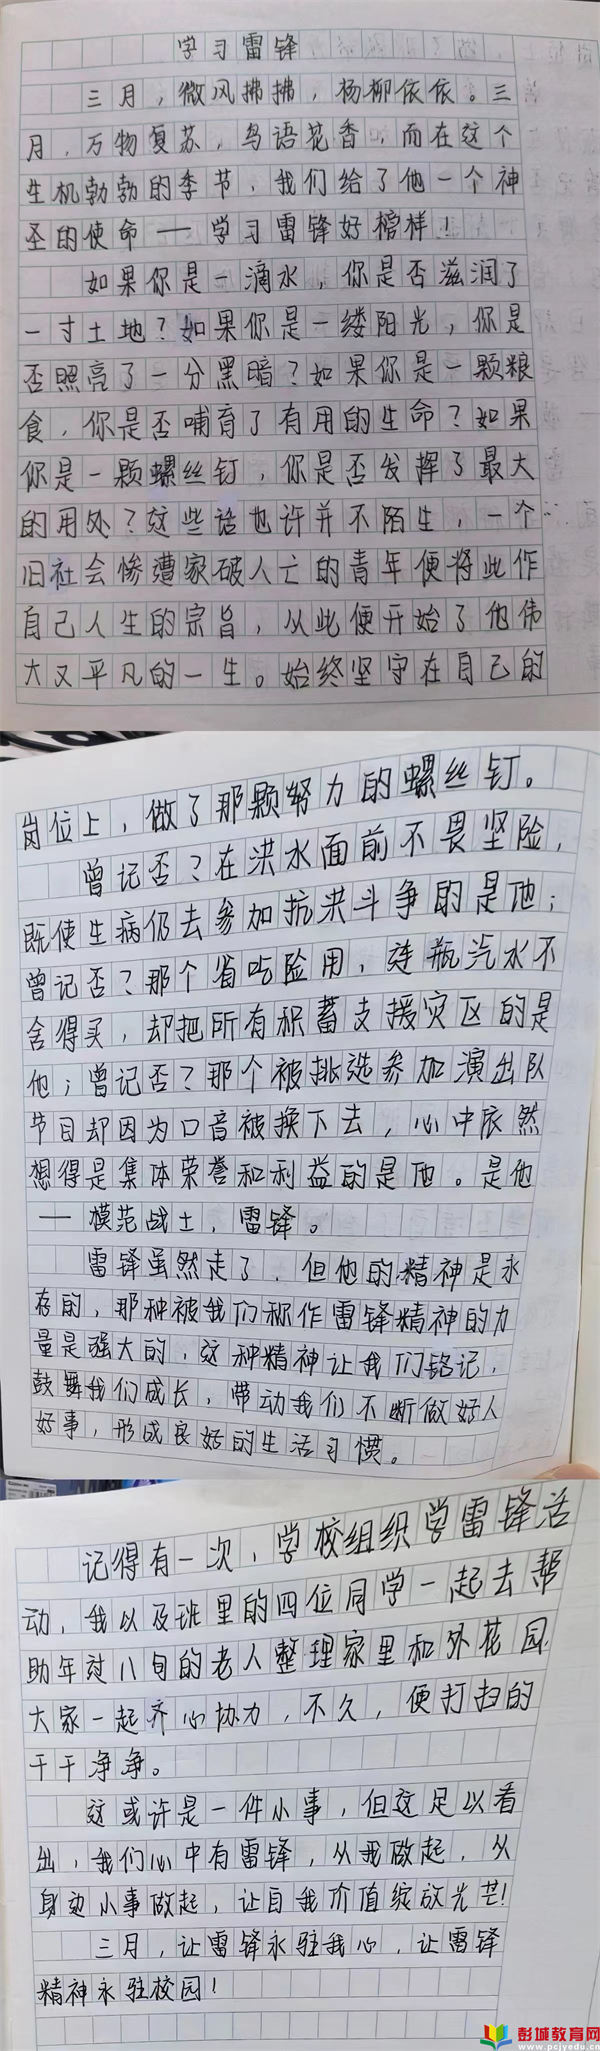 学习雷锋
三月，微风拂拂，杨柳依依。三
月，万物复苏，鸟语花香，而在这个
生机勃勃的季节，我们给了他一个神
圣的使命——学习雷锋好榜样！
如果你是一滴水，你是否滋润了
一寸土地？如果你是一缕阳光，你是
否照亮了一分黑暗？如果你是一颗粮
食，你是否哺育了有用的生命？如果
你是一颗螺丝钉，你是否发挥了最大
的用处？这些话也许并不陌生，一个
旧社会惨遭家破人亡的青年便将此作
自己人生的宗旨，从此便开始了他伟
大又平凡的一生。始终坚守在自己的
岗位上，做了那颗努力的螺丝钉。
曾记否？在洪水面前不畏坚险，
既使生病仍去参加抗洪斗争的是他；
曾记否？那个省吃俭用，连瓶汽水不
舍得买，却把所有积蓄支援灾区的是
他；曾记否？那个被挑选参加演出队
节目却因为口音被换下去，心中依然
想得是集体荣誉和利益的是他。是他
——模范战士，雷锋。
雷锋虽然走了，但他的精神是永
存的，那种被我们称作雷锋精神的力
量是强大的，这种精神让我们铭记，
鼓舞我们成长，带动我们不断做好人
好事，形成良好的生活习惯。
记得有一次，学校组织学雷锋活
动，我以及班里的四位同学一起去帮
助年过八旬的老人整理家里和外花园，
大家一起齐心协力，不久，便打扫的
干干净净。
这或许是一件小事，但这足以看
出，我们心中有雷锋，从我做起，从
身边小事做起，让自我价值绽放光芒！
三月，让雷锋永驻我心，让雷锋
精神永驻校园！
彭城教育网
www.pcjyedu.cn